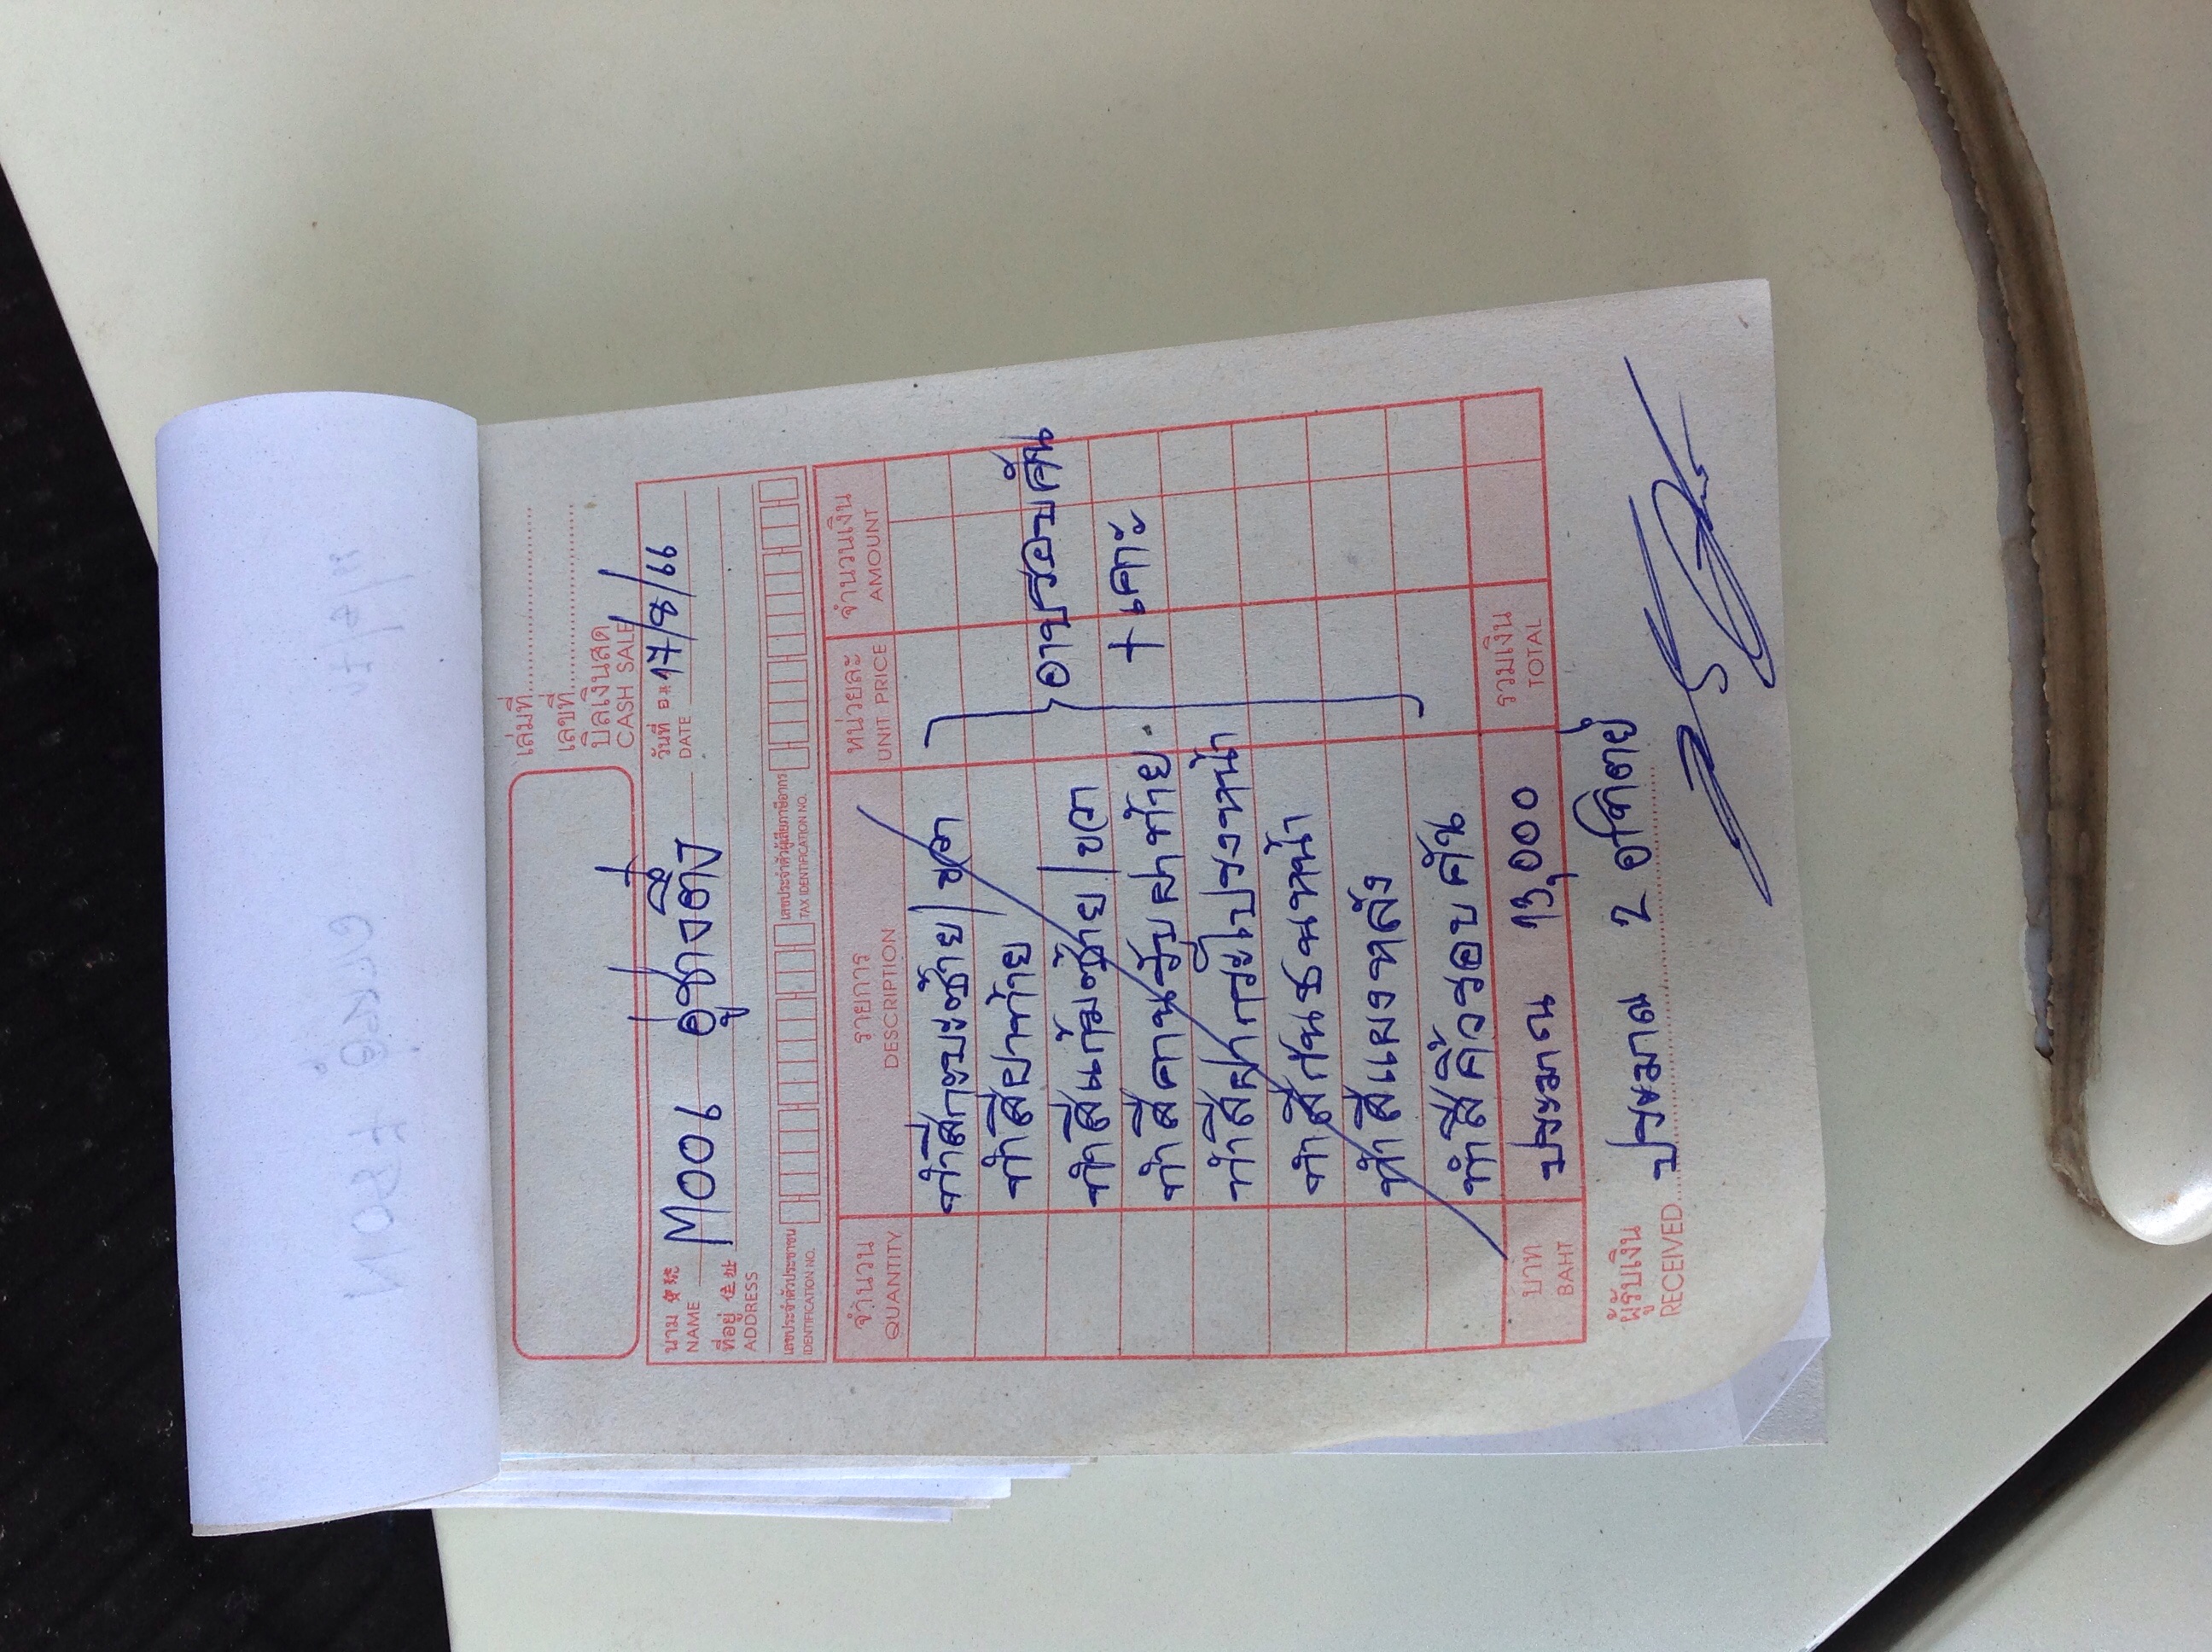 เล่มที่
เลขที่
บิลเงินสด
CASH SALE
นาม
NAME
M006 อู่ช่างติ่ง
วันที่ 17/8/66
DATE
ที่อยู่ 住址
ADDRESS
เลขประจำตัวประชาชน
IDENTIFICATION NO.
เลขประจำตัวผู้เสียภาษีอากร
TAX IDENTIFICATION NO.
จำนวน รายการ หน่วยละ จำนวนเงิน
QUANTITY DESCRIPTION UNIT PRICE AMOUNT
ทำสีกระบะซ้าย/ขวา
ทำสีฝาท้าย
ทำสีแก้มซ้าย/ขวา อาบรอบคัน
ทำสีคานรับฝาท้าย + เคาะ
ทำสีฝากระโปรงหน้า
ทำสีกันชนหน้า
ทำสีแผงหลัง
ทำสีคิ้วรอบคัน
บาท ประมาณ 13,000 รวมเงิน
BAHT TOTAL
ผู้รับเงิน ประมาณ 2 อาทิตย์
RECEIVED